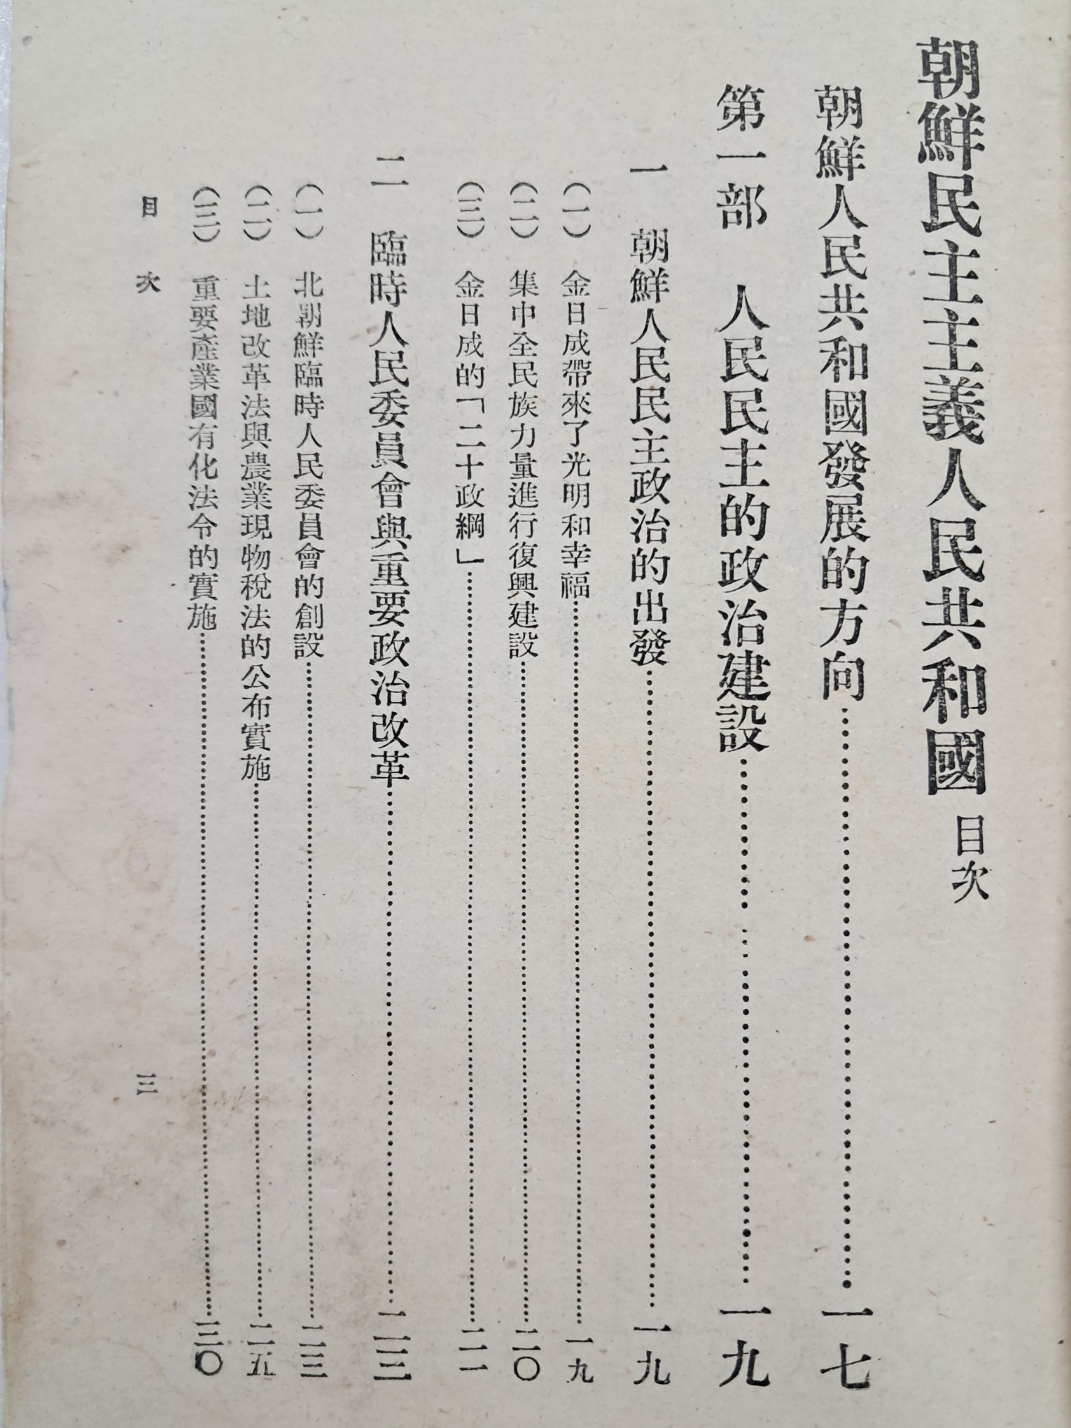 朝鮮民主主義人民共和國 目次
朝鮮人民共和國發展的方向……一七
第一部 人民民主的政治建設……一九
一 朝鮮人民民主政治的出發……一九
（一） 金日成帶來了光明和幸福……一九
（二） 集中全民族力量進行復興建設……二〇
（三） 金日成的「二十政綱」……二一
二 臨時人民委員會與重要政治改革……二三
（一） 北朝鮮臨時人民委員會的創設……二三
（二） 土地改革法與農業現物稅法的公布實施……二五
（三） 重要產業國有化法令的實施……三〇
目次 三